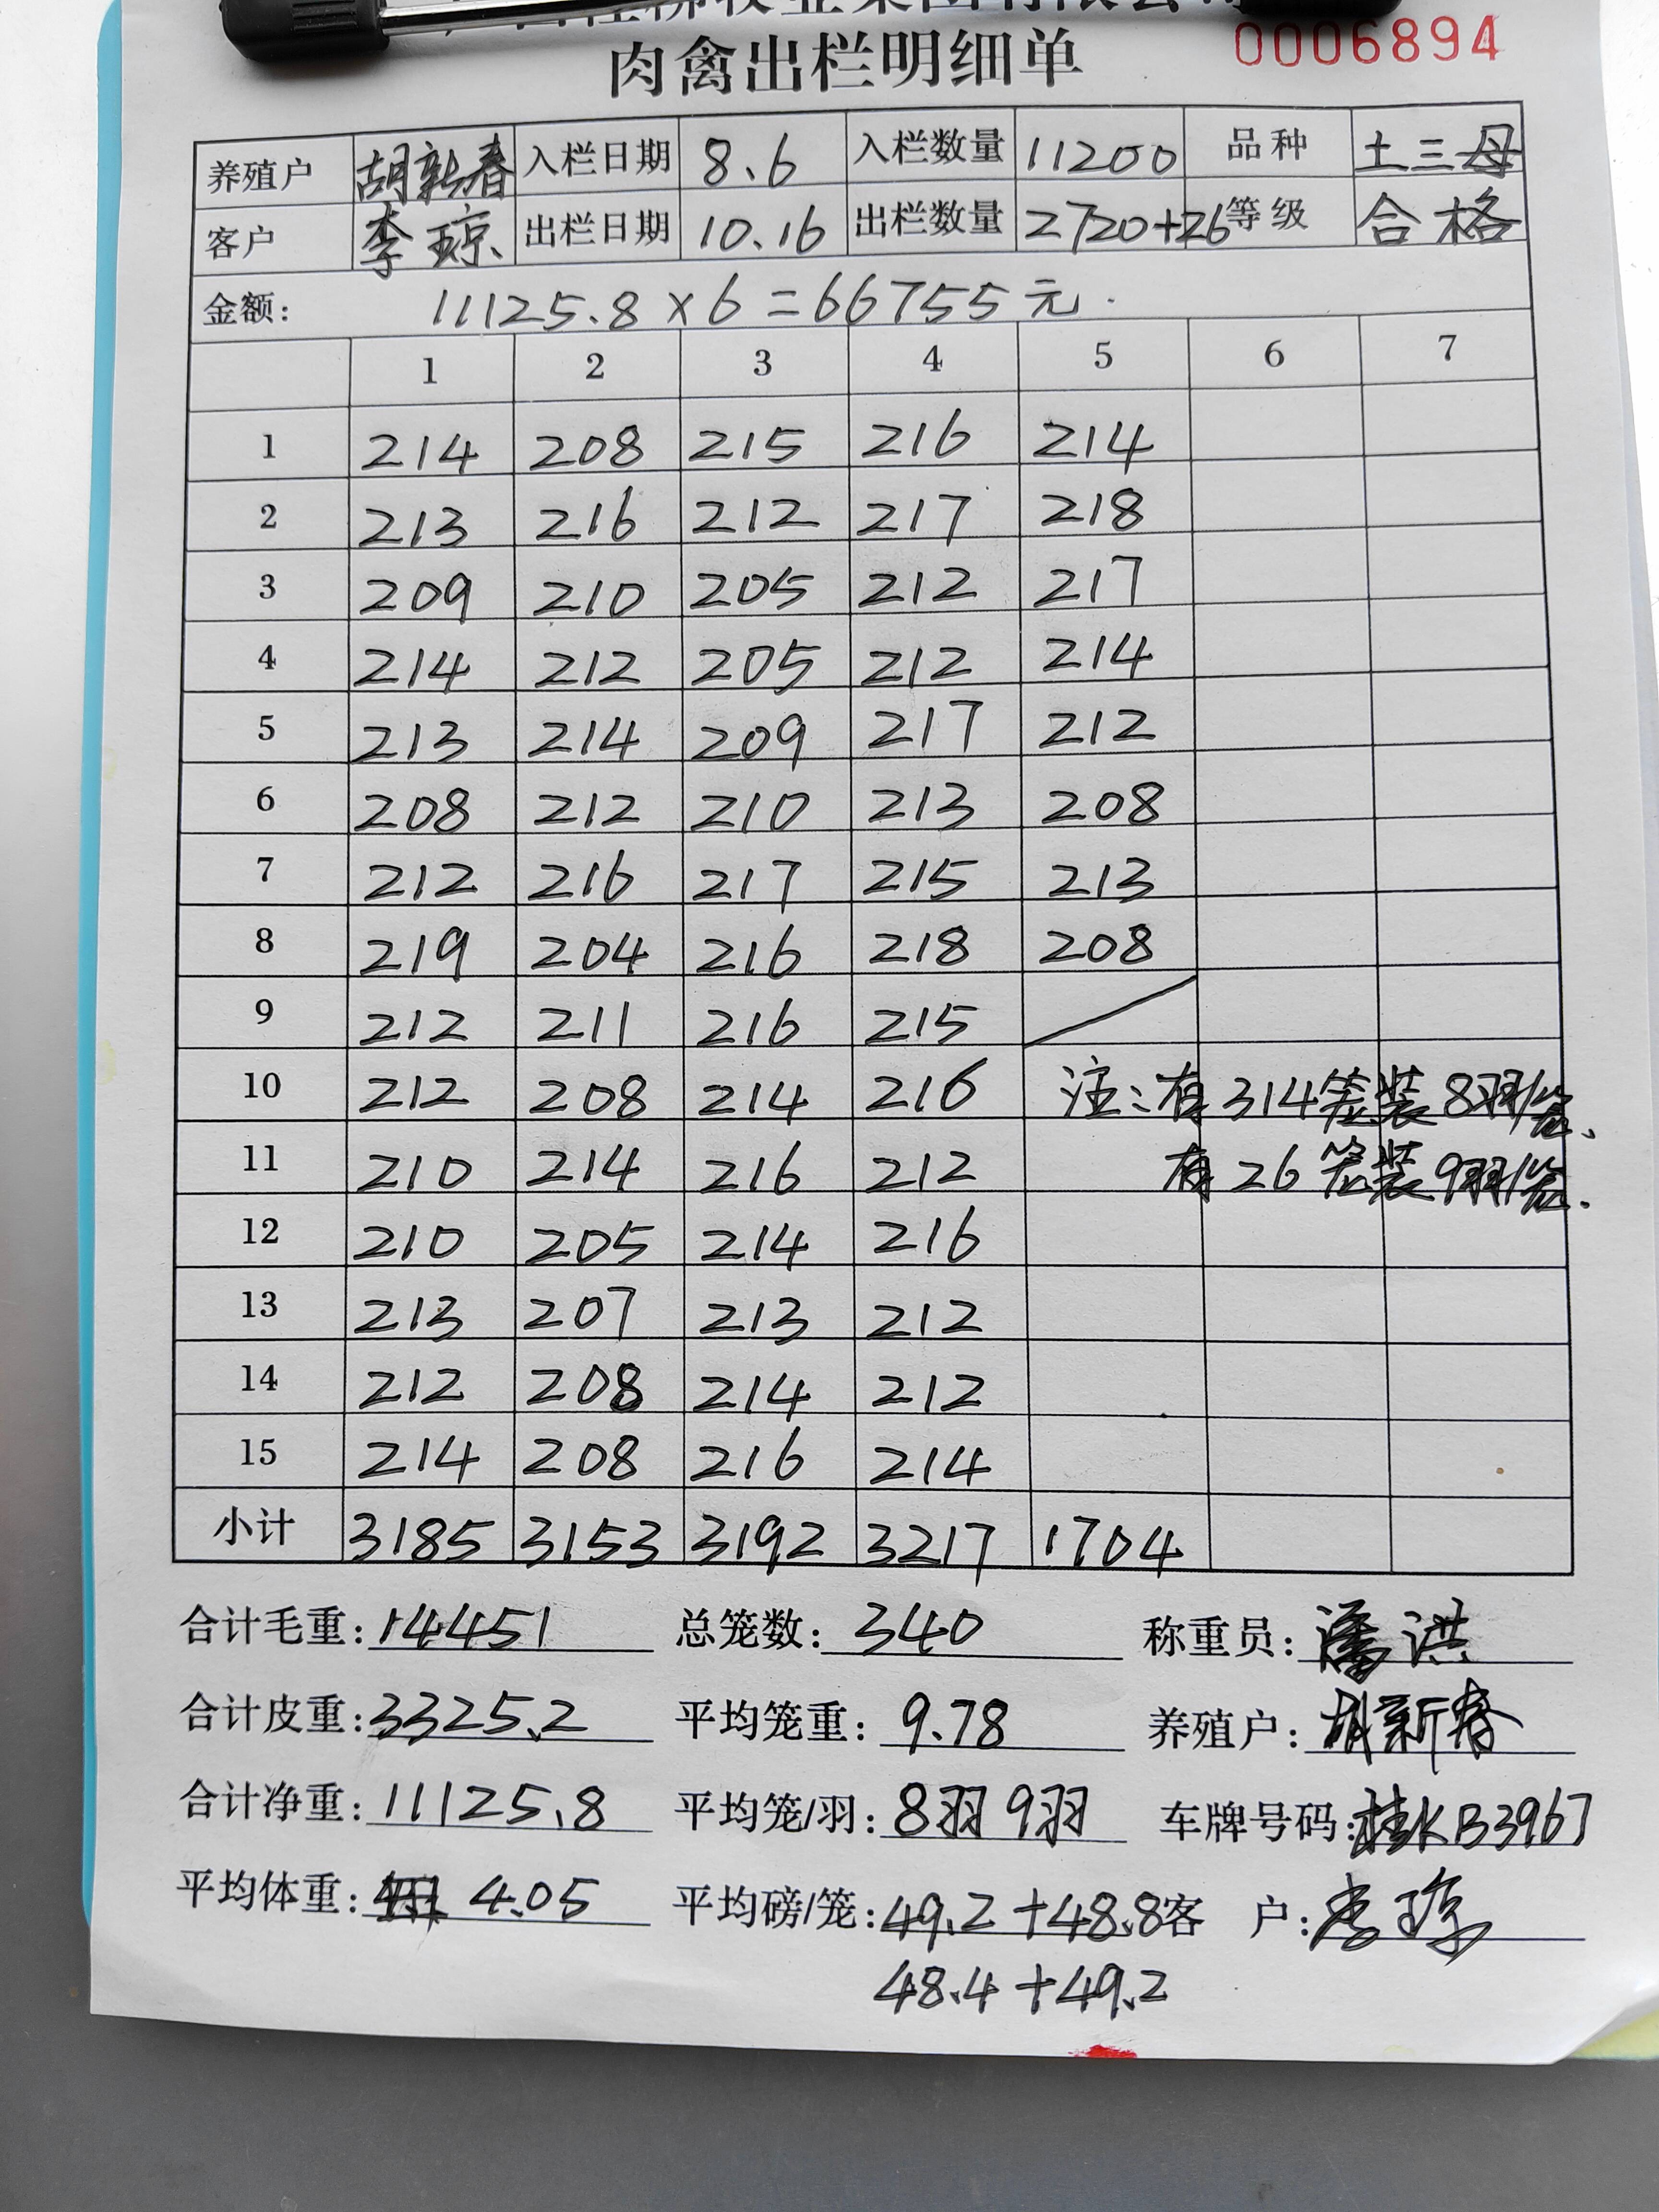 肉禽出栏明细单 0006894
养殖户 胡新春 入栏日期 8.6 入栏数量 11200 品种 土三母
客户 李琼 出栏日期 10.16 出栏数量 2720+26 等级 合格
金额: 11125.8×6=66755元.
1 2 3 4 5 6 7
1 214 208 215 216 214
2 213 216 212 217 218
3 209 210 205 212 217
4 214 212 205 212 214
5 213 214 209 217 212
6 208 212 210 213 208
7 212 216 217 215 213
8 219 204 216 218 208
9 212 211 216 215
10 212 208 214 216 注:有314笼装8羽/笼、
11 210 214 216 212 有26笼装9羽/笼.
12 210 205 214 216
13 213 207 213 212
14 212 208 214 212
15 214 208 216 214
小计 3185 3153 3192 3217 1704
合计毛重: 14451 总笼数: 340 称重员: 潘洪
合计皮重: 3325.2 平均笼重: 9.78 养殖户: 胡新春
合计净重: 11125.8 平均笼/羽: 8羽9羽 车牌号码: 桂KB3967
平均体重: 4.05 平均磅/笼: 49.2+48.8 客户: 李琼
48.4+49.2